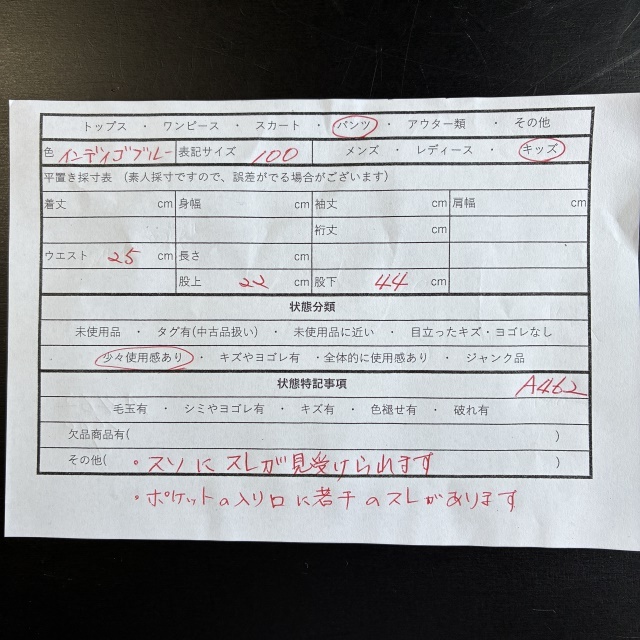 トップス ・ ワンピース ・ スカート ・ パンツ ・ アウター類 ・ その他
色 インディゴブルー 表記サイズ 100 メンズ ・ レディース ・ キッズ
平置き採寸表 （素人採寸ですので、誤差がでる場合がございます）
着丈 cm 身幅 cm 袖丈 cm 肩幅 cm
裄丈 cm
ウエスト 25 cm 長さ cm
股上 22 cm 股下 44 cm
状態分類
未使用品 ・ タグ有(中古品扱い) ・ 未使用品に近い ・ 目立ったキズ・ヨゴレなし
少々使用感あり ・ キズやヨゴレ有 ・全体的に使用感あり ・ ジャンク品
状態特記事項 A462
毛玉有 ・ シミやヨゴレ有 ・ キズ有 ・ 色褪せ有 ・ 破れ有
欠品商品有( )
その他( ・スソにスレが見受けられます )
・ポケットの入り口に若干のスレがあります